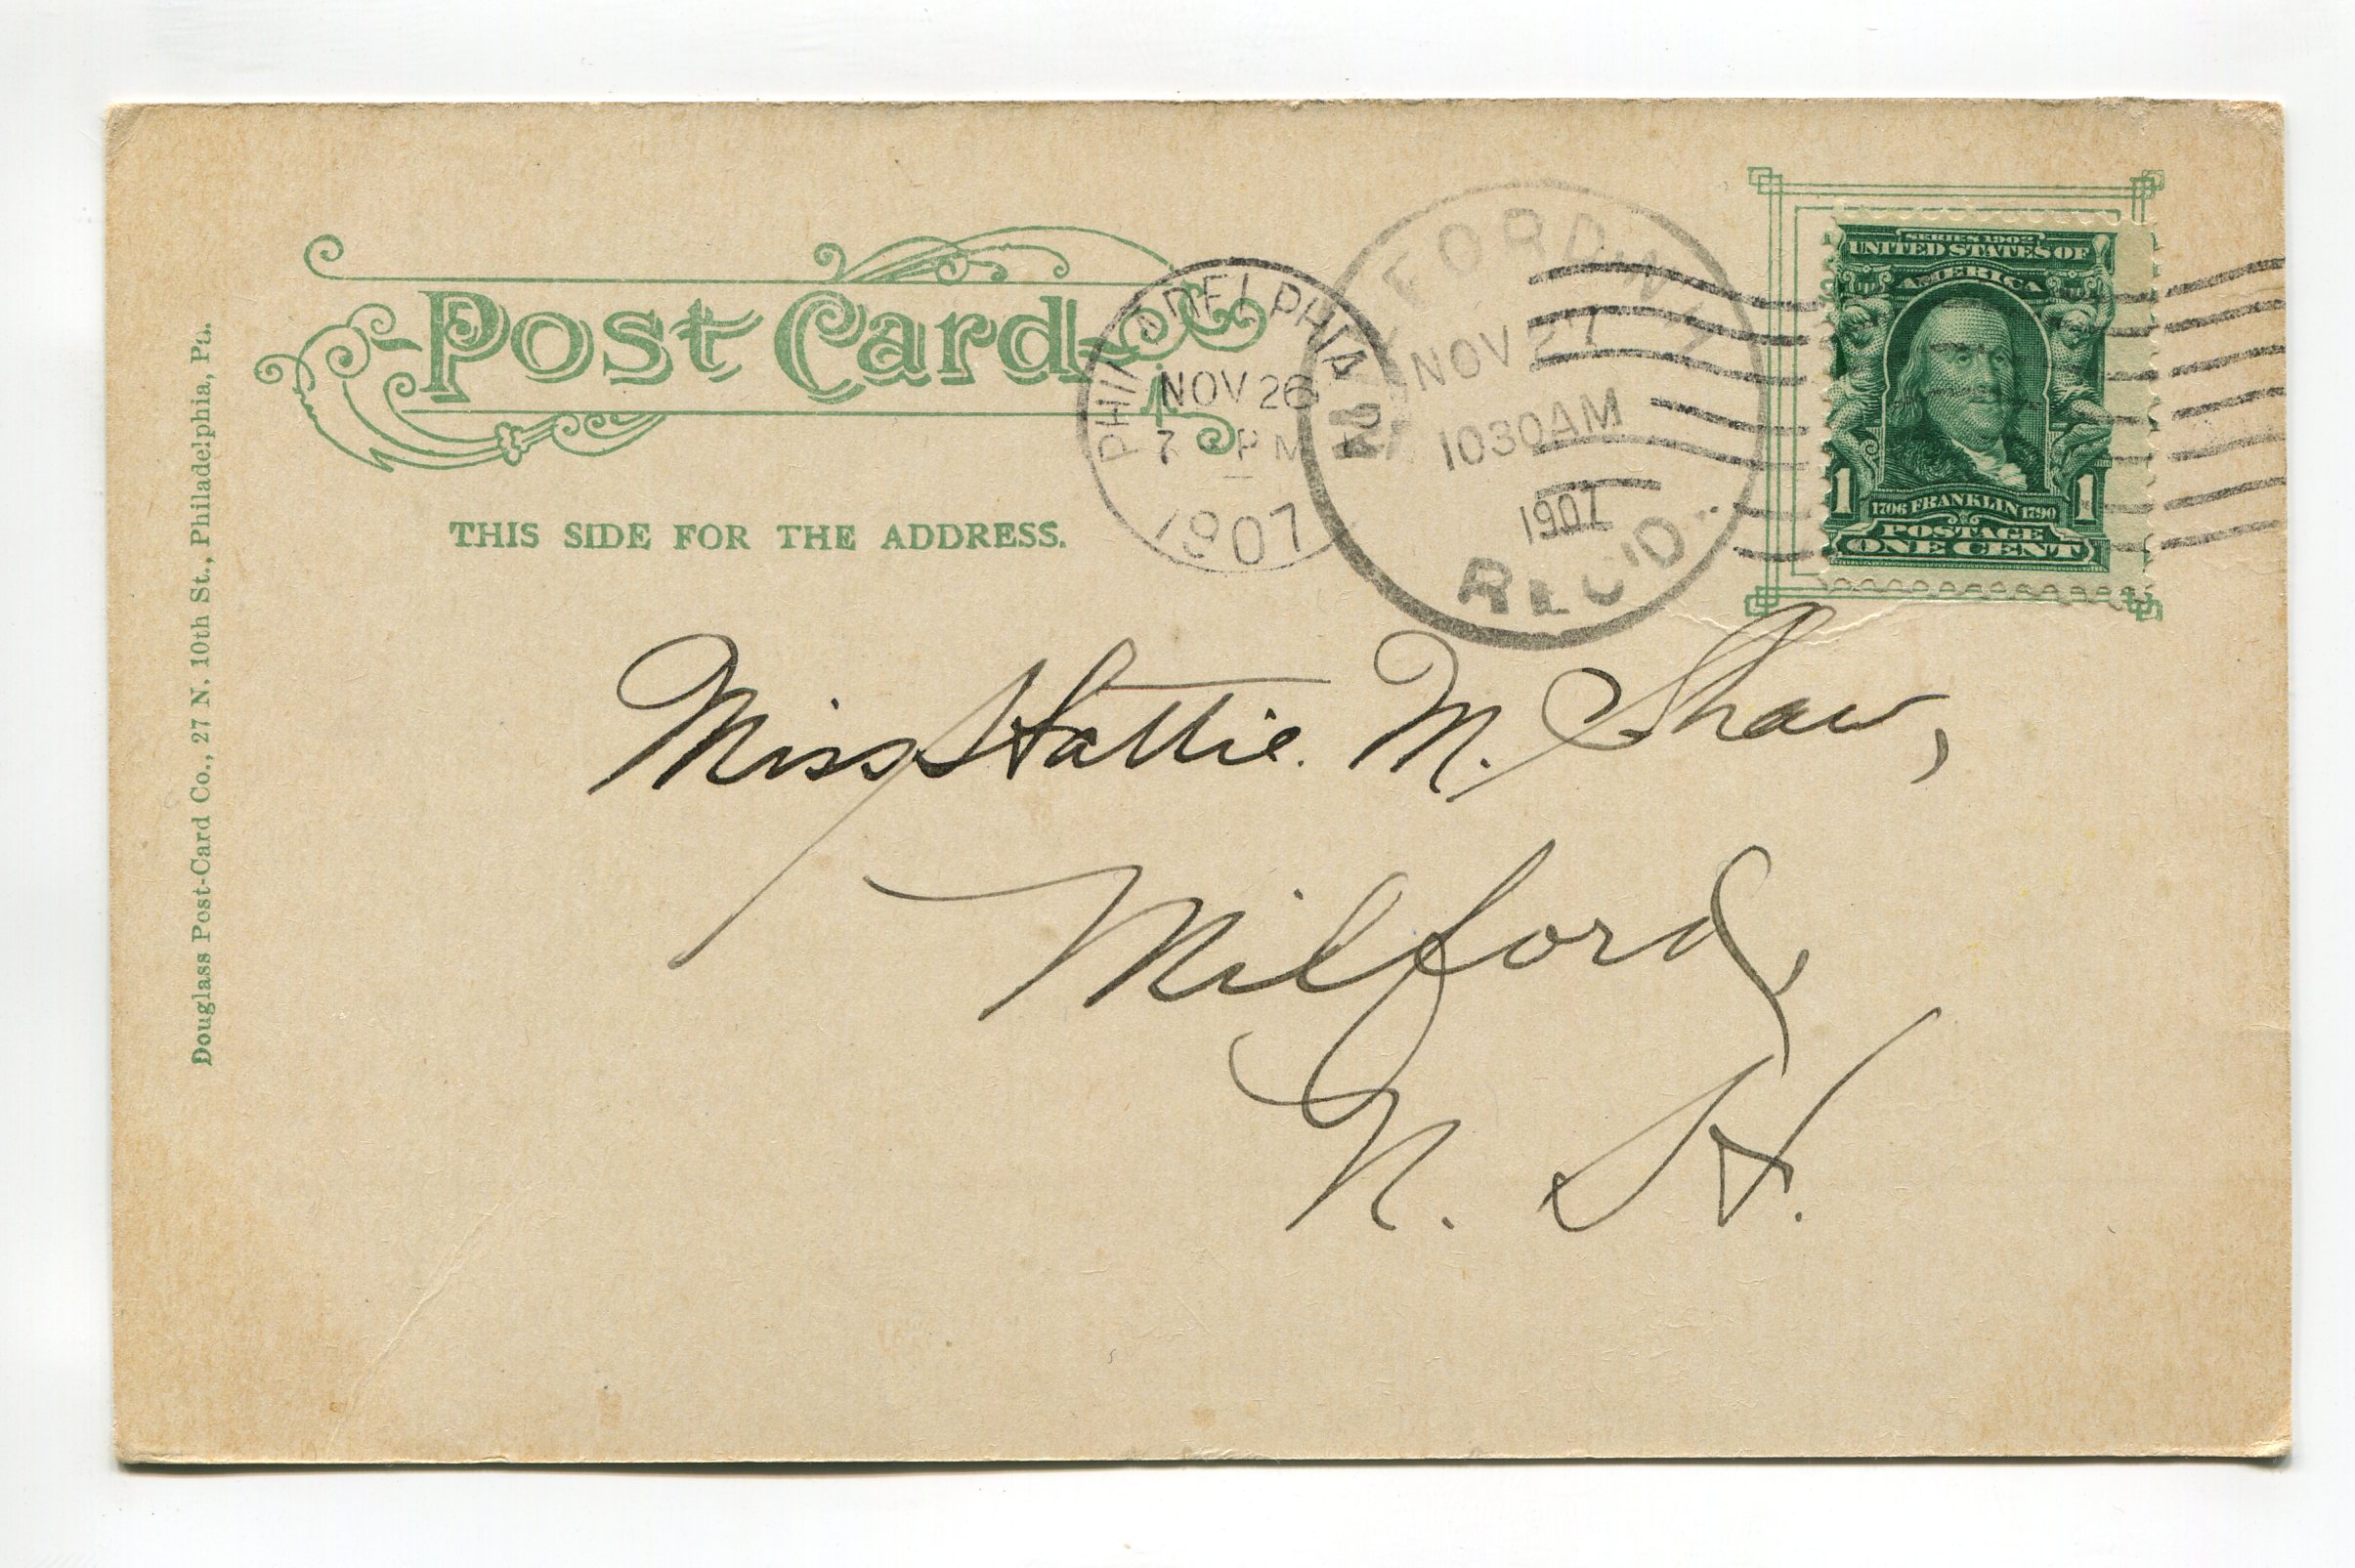 Post Card
THIS SIDE FOR THE ADDRESS.
Douglass Post-Card Co., 27 N. 10th St., Philadelphia, Pa.
PHILADELPHIA
NOV 26
7 PM
1907
MILFORD, N.H.
NOV 27
1030AM
1907
REC'D.
SERIES 1902
UNITED STATES OF
AMERICA
1 1706 FRANKLIN 1790 1
POSTAGE
ONE CENT
Miss Hattie. M. Shaw,
Milford,
N. H.